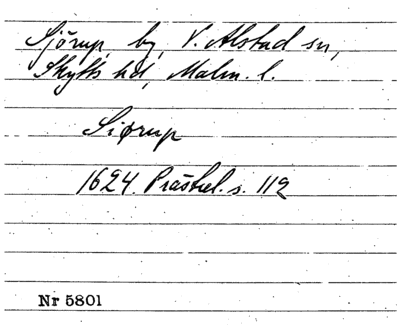 Sjörup, by, V. Alstad sn,
Skytts hd, Malm. l.
Siørup
1624. Prästrel. s. 112
Nr 5801